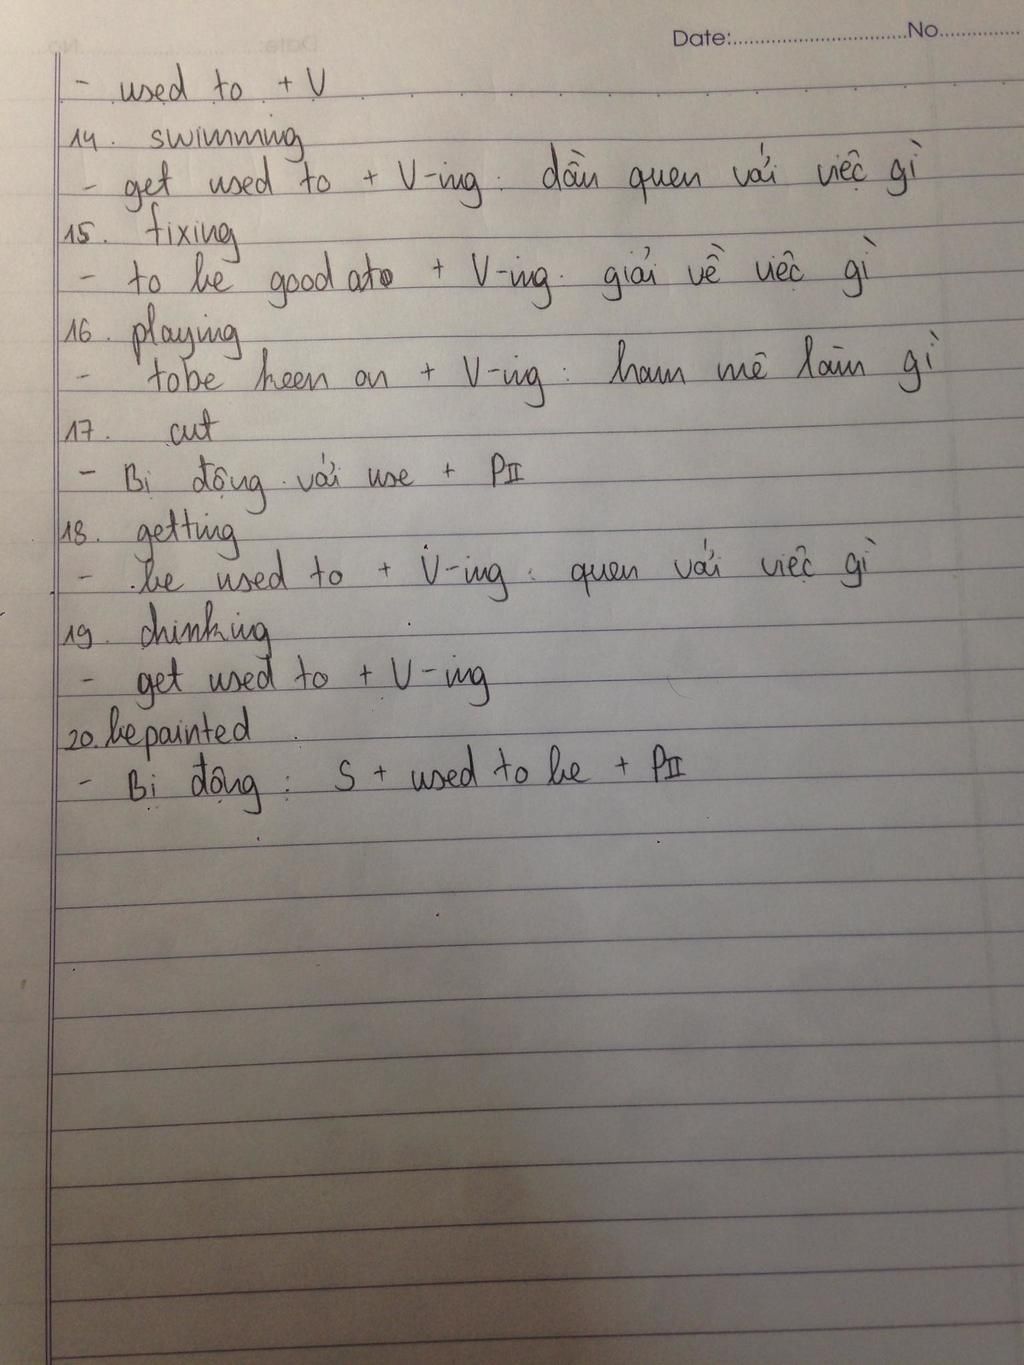 Date:..............................No..............
- used to + V
14. swimming
- get used to + V-ing : dần quen với việc gì
15. fixing
- to be good at + V-ing : giỏi về việc gì
16. playing
- tobe keen on + V-ing : ham mê làm gì
17. cut
- Bị động với use + PII
18. getting
- be used to + V-ing : quen với việc gì
19. drinking
- get used to + V-ing
20. be painted
- Bị động : S + used to be + PII